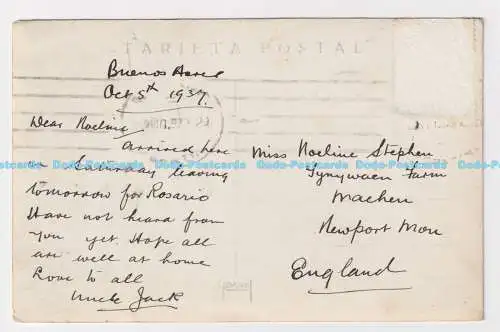 TARJETA POSTAL
Buenos Aires
Oct 5th 1937.
Dear Noeline
Arrived here
on Saturday leaving
tomorrow for Rosario
Have not heard from
you yet. Hope all
are well at home
Love to all
Uncle Jack
Miss Noeline Stephen
Tynywaen Farm
Machen
Newport Mon
England
Dodo-Postcards Dodo-Postcards Dodo-Postcards Dodo-Postcards Dodo-Postcards